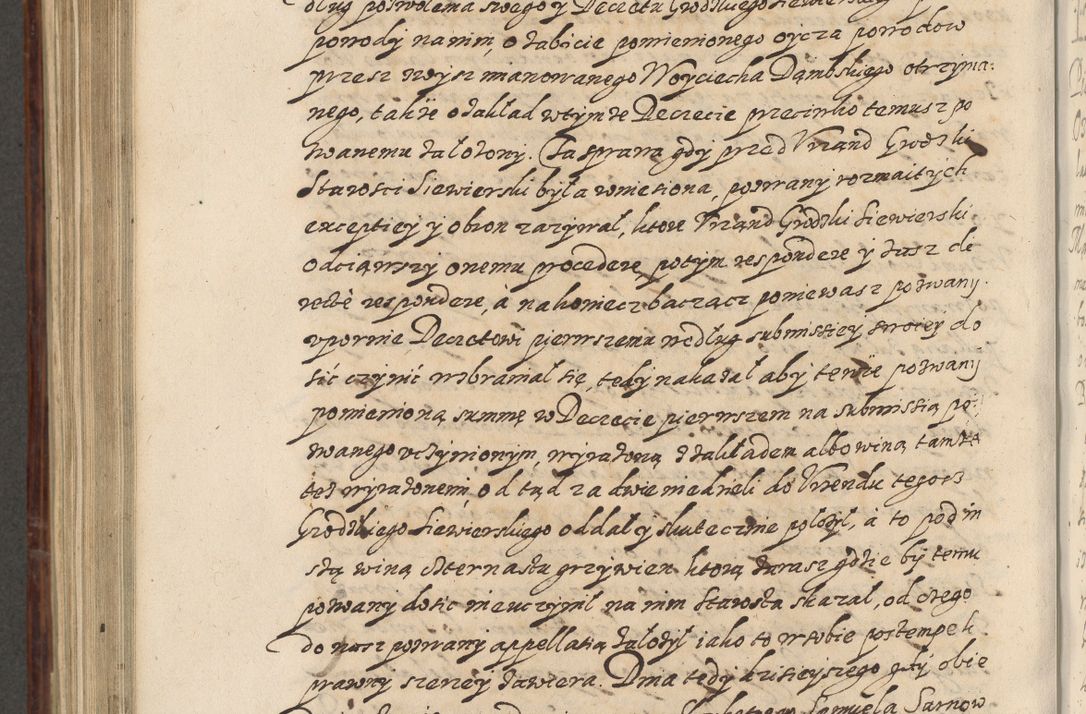 dług pozwolenia swego y Decretu Grodzkiego Siewierskiego
powody na nim, o zabicie pomienionego oycza powodow
przesz wysz mianowanego Woyciecha Dąmbskiego otrzyma:
nego, także o zakład w tymże Decrecie przeciwko temusz po
zwanemu założony. Ta sprawa gdy przed Vrzand Grodzki
Starosci Siewierski była wniesiona, pozwany rozmaitych
exceptiey y obron zazywał, ktore Vrzand Grodzki Siewierski
odciąwszy onemu procedere potym respondere y zasz di
recte respondere, à nakoniecz baczącz poniewasz pozwany
vpornie Decretowi pierwszemu według submissiey swoiey do
sić czynić wzbraniał się, tedy nakazał aby tenże pozwany
pomienioną summę w Decrecie pierwszem na submissią po:
zwanego vczynionym, wyrażoną z zakładem albo winą tamże
też wyrażonemi, od tąd za dwie niedzieli do Vrzendu tegosz
Grodzkiego Siewierskiego oddał y skutecznie położył, à to pod in
szą winą czternastu grzywien ktorą zarasz gdzie by temu
pozwany dosic nieuczynił na nim Starosta skazał, od czego
do nasz pozwany appellatią założył iako to w sobie postempek
prawny szerzey zawiera. Dnia tedy dzisieyszego gdy obie
Samuela Sarnow